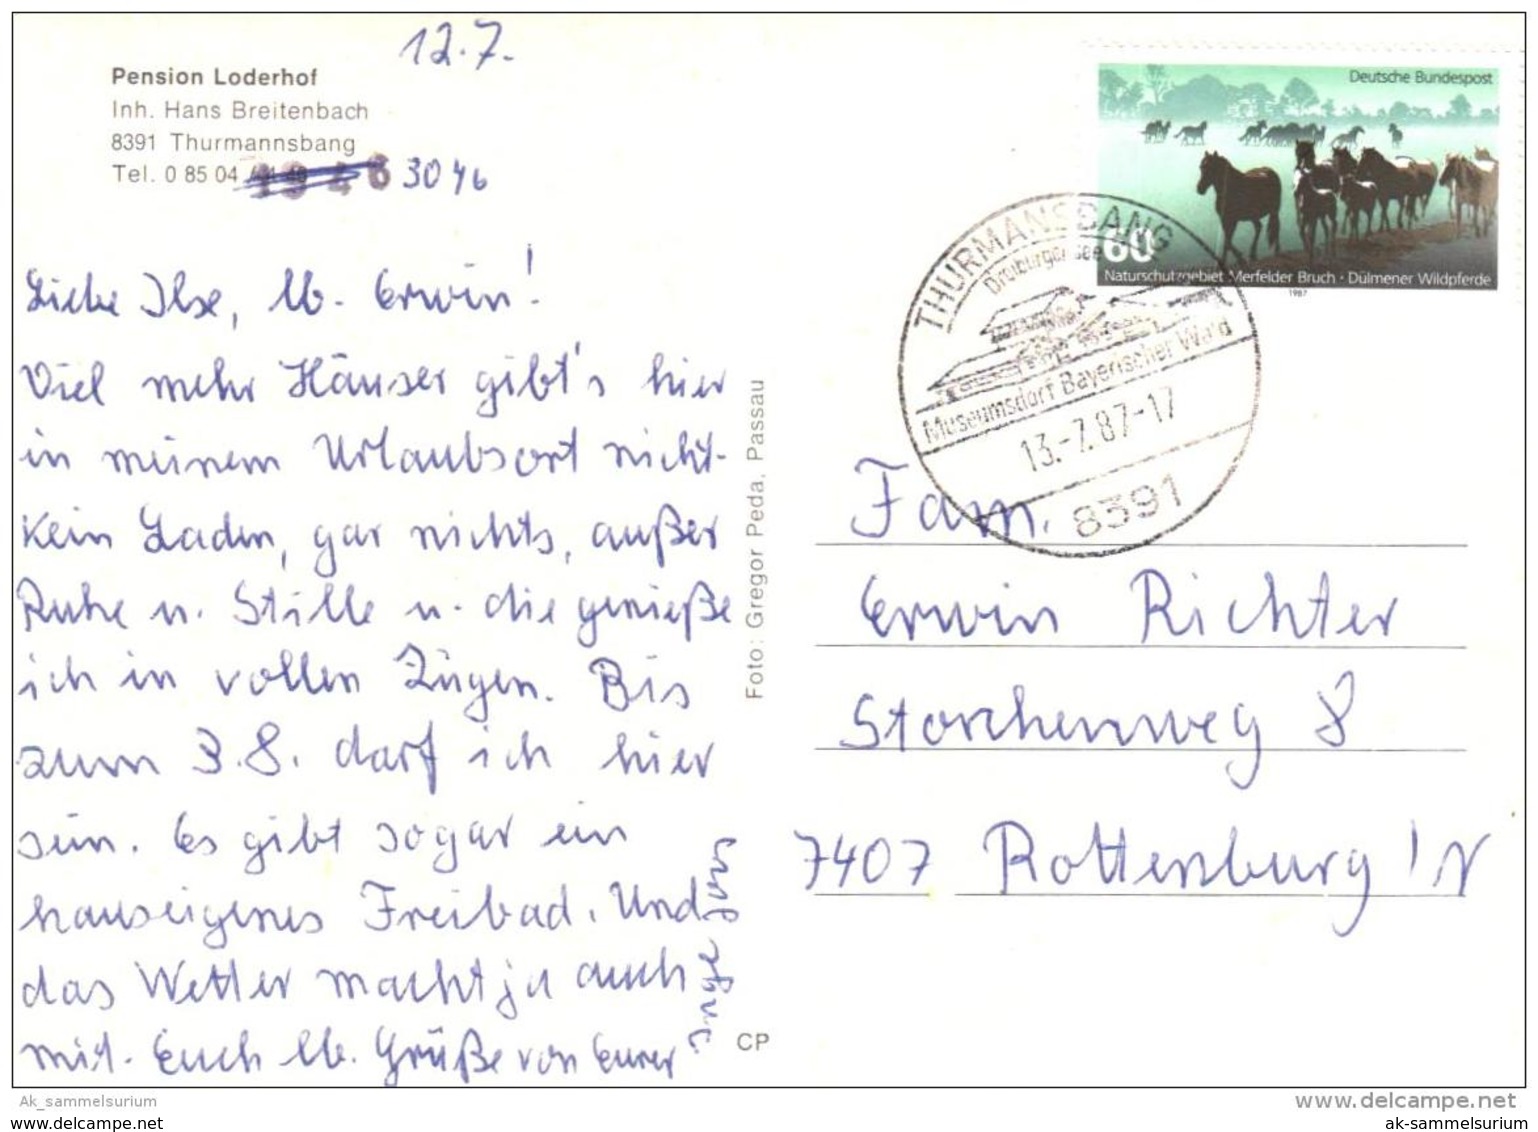 12.7.
Pension Loderhof
Inh. Hans Breitenbach
8391 Thurmannsbang
Tel. 0 85 04 3046
Liebe Ilse, lb. Erwin!
Viel mehr Häuser gibt's hier
in meinem Urlaubsort nicht.
Kein Laden, gar nichts, außer
Ruhe u. Stille u. die genieße
ich in vollen Zügen. Bis
zum 3.8. darf ich hier
sein. Es gibt sogar ein
hauseigenes Freibad. Und
das Wetter macht ja auch
mit. Euch lb. Grüße von Eurer
Foto: Gregor Peda, Passau
CP
Deutsche Bundespost
60
Naturschutzgebiet Merfelder Bruch · Dülmener Wildpferde
1987
THURMANSBANG
Dreiburgensee
Museumsdorf Bayerischer Wald
13.-7.87-17
8391
Fam.
Erwin Richter
Storchenweg 8
7407 Rottenburg/N
Ak_sammelsurium
www.delcampe.net
www.ak-sammelsurium.com
ak-sammelsurium.com